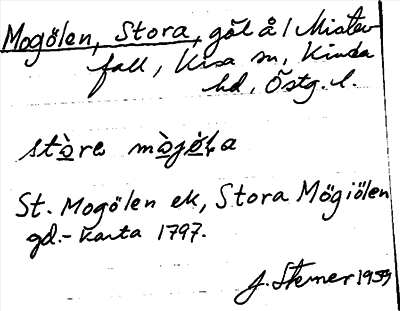 Mogölen, Stora, göl å / Mister
fall, Kisa sn, Kinda
hd, Östg. l.
stòre mògö̀ɽa
St. Mogölen ek, Stora Mögiölen
gd.-karta 1797.
J. Sterner 1939